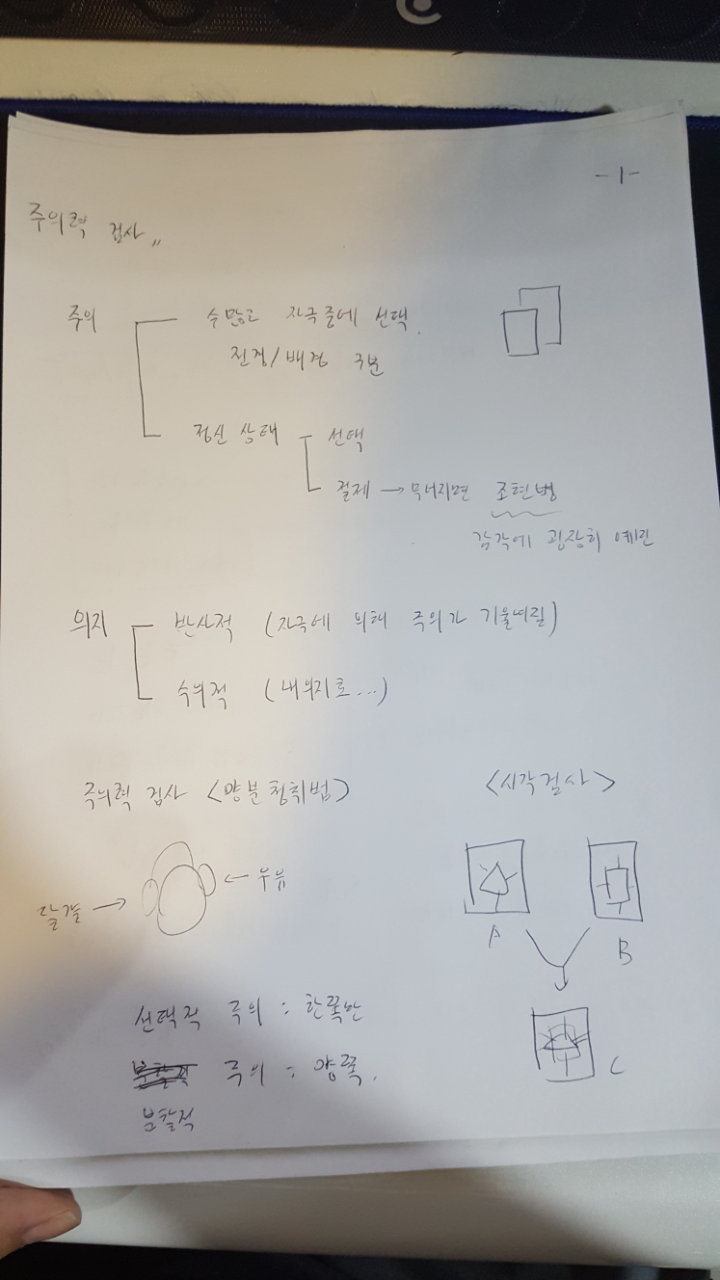 -1-
주의력 검사 〃
주의
수많은 자극중에 선택.
전경/배경 구분
정신 상태
선택
절제 → 무너지면 조현병
감각에 굉장히 예민
의지
반사적 (자극에 의해 주의가 기울여짐)
수의적 (내의지로...)
주의력 검사 <양분청취법>
<시각검사>
달걀 →
← 우유
A
B
C
선택적 주의 : 한쪽만
주의 : 양쪽.
분할적